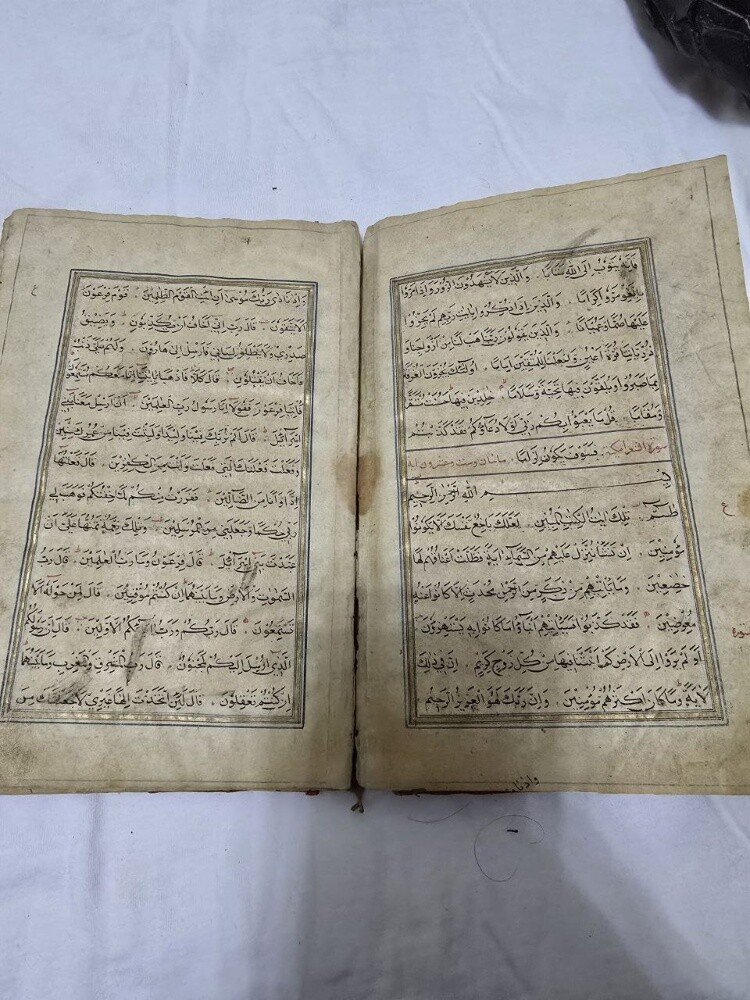 فانه يتوب الى الله متابا والذين لا يشهدون الزور واذا مروا
باللغو مروا كراما والذين اذا ذكروا بايات ربهم لم يخروا
عليها صما وعميانا والذين يقولون ربنا هب لنا من ازواجنا و
ذرياتنا قرة اعين واجعلنا للمتقين اماما اولئك يجزون الغرفة
بما صبروا ويلقون فيها تحية وسلاما خلدين فيها حسنت مستقرا
ومقاما قل ما يعبؤا بكم ربي لولا دعاؤكم فقد كذبتم
سورة الشعرا مكية فسوف يكون لزاما مائتان وست وعشرون اية
بسم الله الرحمن الرحيم
طسم تلك ايت الكتب المبين لعلك باخع نفسك الا يكونوا
مؤمنين ان نشا ننزل عليهم من السماء اية فظلت اعناقهم لها
خضعين وما ياتيهم من ذكر من الرحمن محدث الا كانوا عنه
معرضين فقد كذبوا فسياتيهم انباؤا ما كانوا به يستهزؤن
اولم يروا الى الارض كم انبتنا فيها من كل زوج كريم ان في ذلك
لاية وما كان اكثرهم مؤمنين وان ربك لهو العزيز الرحيم
واذ نا
سورة
ع
واذ نادى ربك موسى ان ائت القوم الظلمين قوم فرعون
الا يتقون قال رب اني اخاف ان يكذبون ويضيق
صدري ولا ينطلق لساني فارسل الى هارون ولهم علي ذنب
فاخاف ان يقتلون قال كلا فاذهبا باياتنا انا معكم مستمعون
فاتيا فرعون فقولا انا رسول رب العلمين ان ارسل معنا بني
اسرائيل قال الم نربك فينا وليدا ولبثت فينا من عمرك سنين
وفعلت فعلتك التي فعلت وانت من الكفرين قال فعلتها
اذا وانا من الضالين ففررت منكم لما خفتكم فوهب لي
ربي حكما وجعلني من المرسلين وتلك نعمة تمنها علي ان
عبدت بني اسرائيل قال فرعون وما رب العلمين قال رب
السموت والارض وما بينهما ان كنتم موقنين قال لمن حوله الا
تستمعون قال ربكم ورب ابائكم الاولين قال ان رسولكم
الذي ارسل اليكم لمجنون قال رب المشرق والمغرب وما بينهما
ان كنتم تعقلون قال لئن اتخذت الها غيري لاجعلنك من
ع